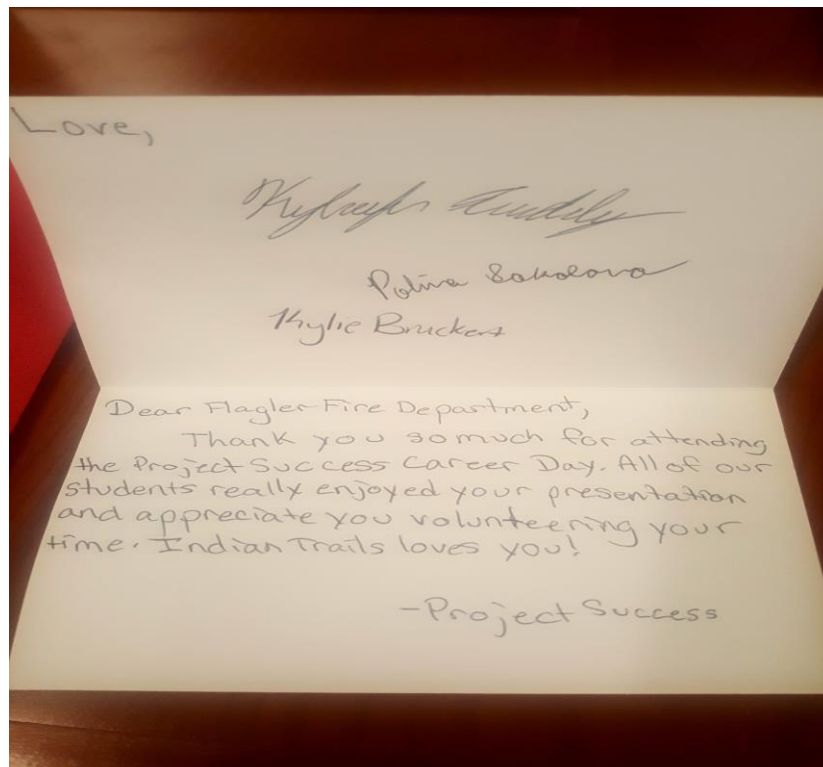 Love,
Polina Sokolova
Kylie Bruckert
Dear Flagler Fire Department,
Thank you so much for attending
the Project Success Career Day. All of our
students really enjoyed your presentation
and appreciate you volunteering your
time. Indian Trails loves you!
-Project Success